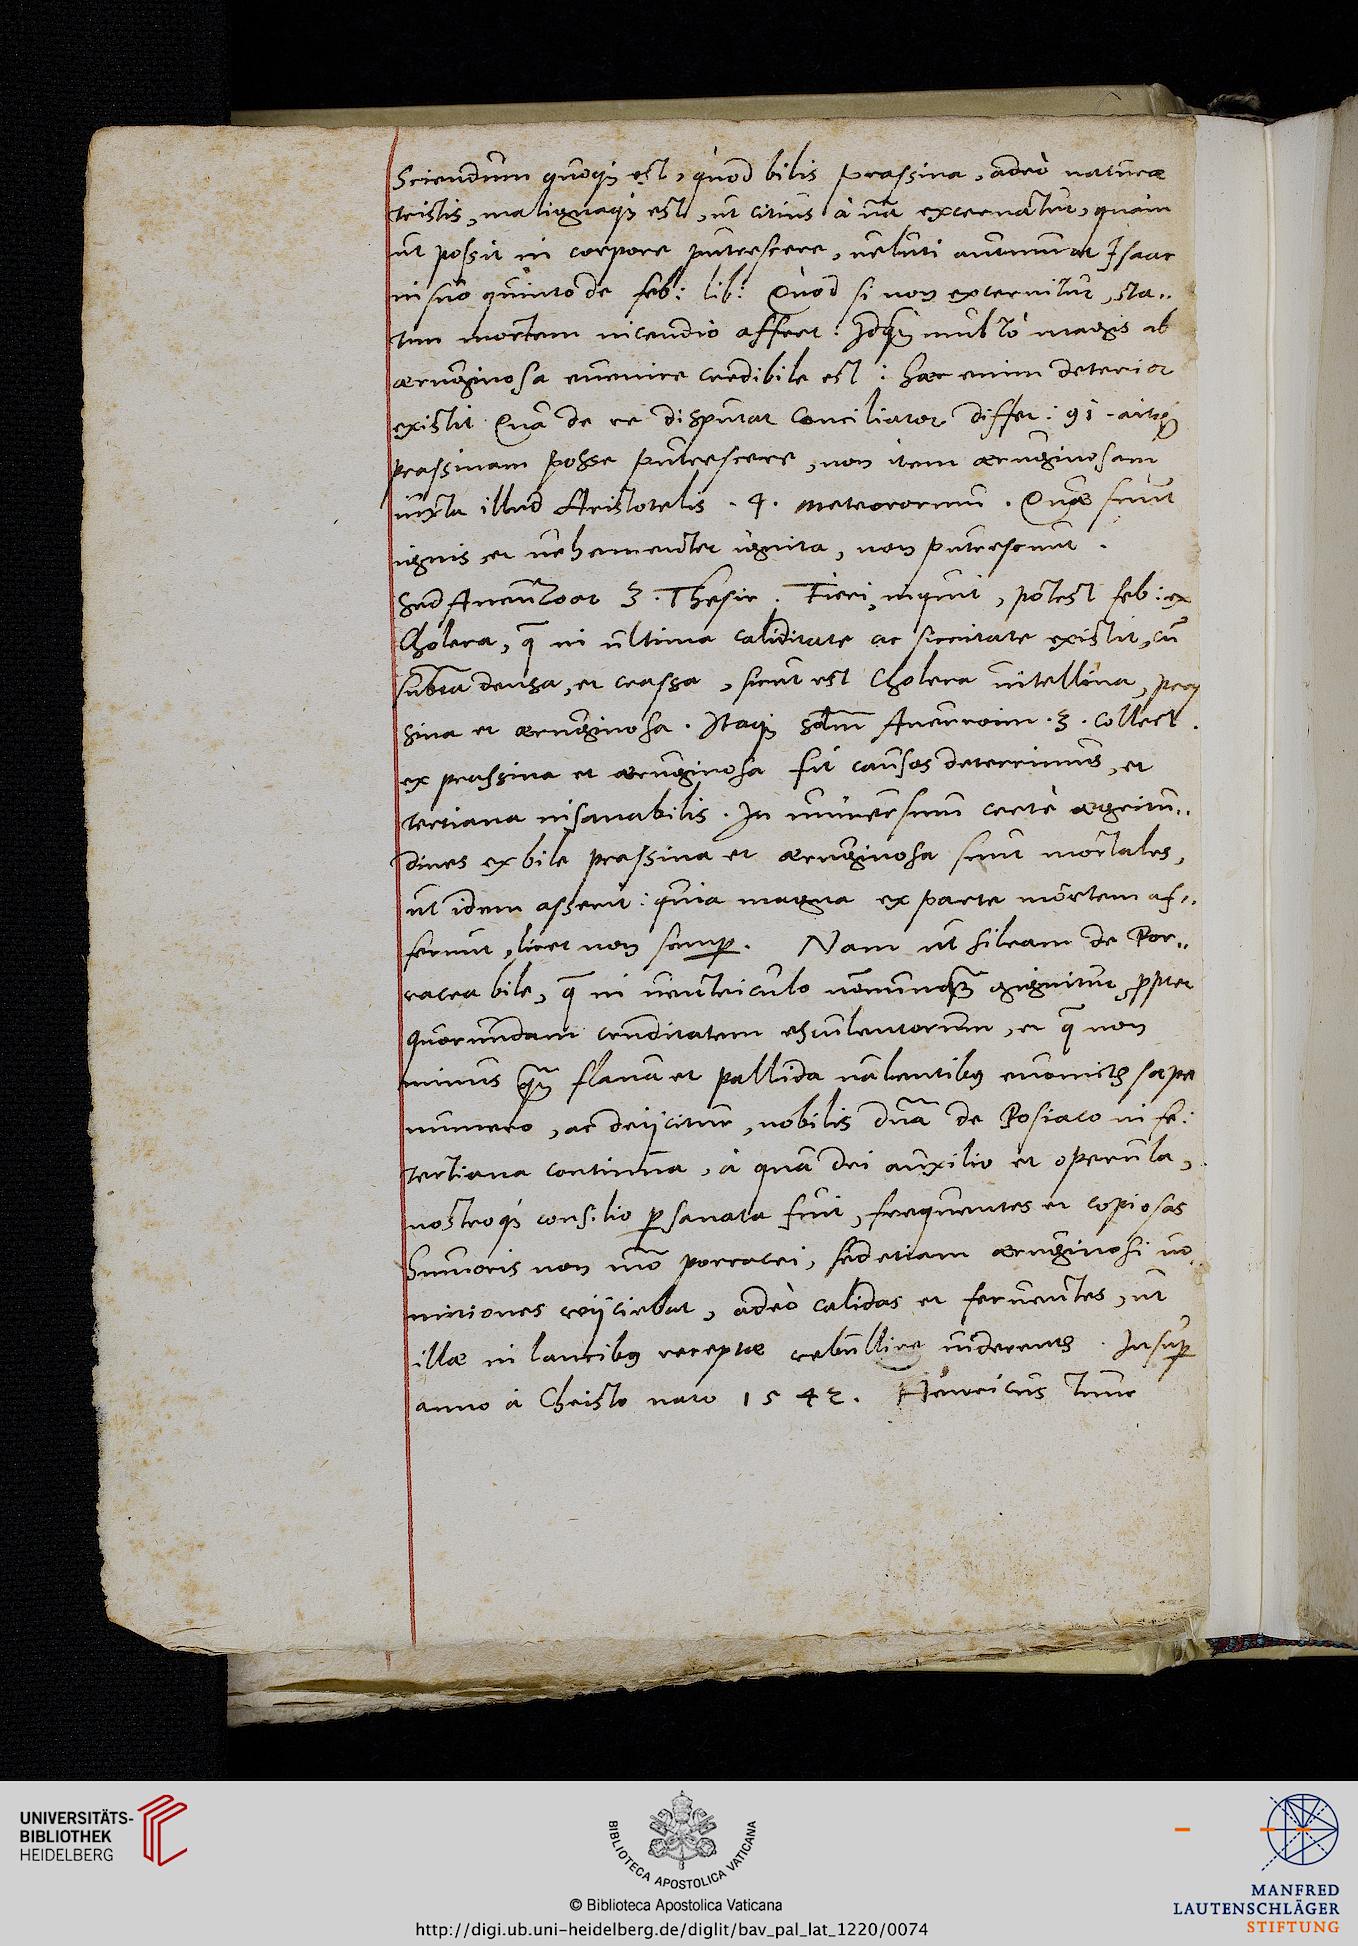 Sciendum quoq3 est, quod bilis prassina, adeò naturæ
tristis, malignaq3 est, ut citius à nā excernatur, quàm
ut possit in corpore putrescere, ueluti autumat Isaac
in suo quinto de feb: lib: Quod si non excernitur, sta-
tim mortem incendio affert: Idq3 multò magis ab
æruginosa euenire credibile est: hæc enim deterior
existit. Quā de re disputat Conciliator differ: 91. aitq3
prassinam posse putrescere, non item æruginosam
iuxta illud Aristotelis .4. meteororum. Quæ sunt
ignis et uehementer ignita, non putrescunt.
Sed Auenzoar 3. Thesir. Fieri, inquit, potest feb: ex
Cholera, q̄ in ultima caliditate ac siccitate existit, cū
subta densa, et crassa, sicut est Cholera uitellina, pras
sina et æruginosa. Itaq3 sdm Auerroim .3. collect.
ex prassina et æruginosa fit causos deterrimus, et
tertiana insanabilis. In uniuersum certè ægritu-
dines ex bile prassina et æruginosa sunt mortales,
ut idem asserit: quia magna ex parte mortem af-
ferunt, licet non semp. Nam ut sileam de Por-
racea bile, q̄ in uentriculo nonnunq̄ gignitur, ppter
quorundam cruditatem esculentorum, et q̄ non
minus q̄ flaua et pallida ualentibus euomitur sæpe
numero, ac deijcitur, nobilis dn̄a de Rosiaco in fe:
tertiana continua, à qua dei auxilio et operula,
nostroq3 consilio psanata fuit, frequentes et copiosas
humoris non mō porracei, sed etiam æruginosi uo
mitiones reijciebat, adeò calidas et feruentes, ut
illæ in lancibus receptæ rebullire uiderentur. Insup
anno à Christo nato 1542. Henricus tunc
UNIVERSITÄTS-
BIBLIOTHEK
HEIDELBERG
BIBLIOTECA APOSTOLICA VATICANA
© Biblioteca Apostolica Vaticana
http://digi.ub.uni-heidelberg.de/diglit/bav_pal_lat_1220/0074
MANFRED
LAUTENSCHLÄGER
STIFTUNG